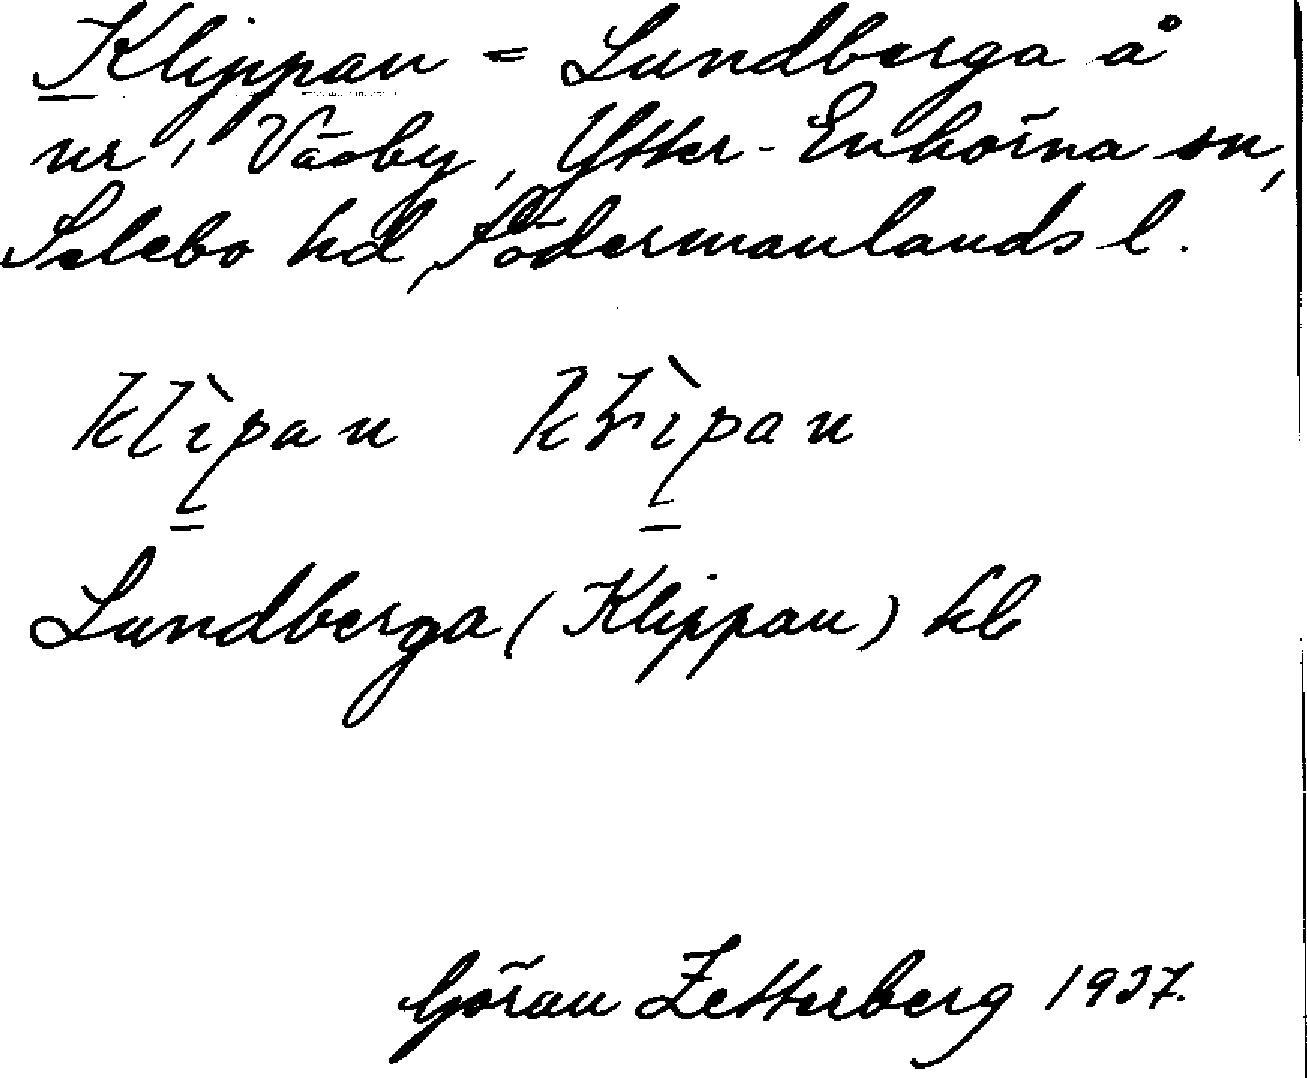 Klippan = Lundberga å
nr 1 Väsby, Ytter-Enhörna sn,
Selebo hd, Södermanlands l.
klìpan kłìpan
Lundberga (Klippan) hb
Göran Zetterberg 1937.